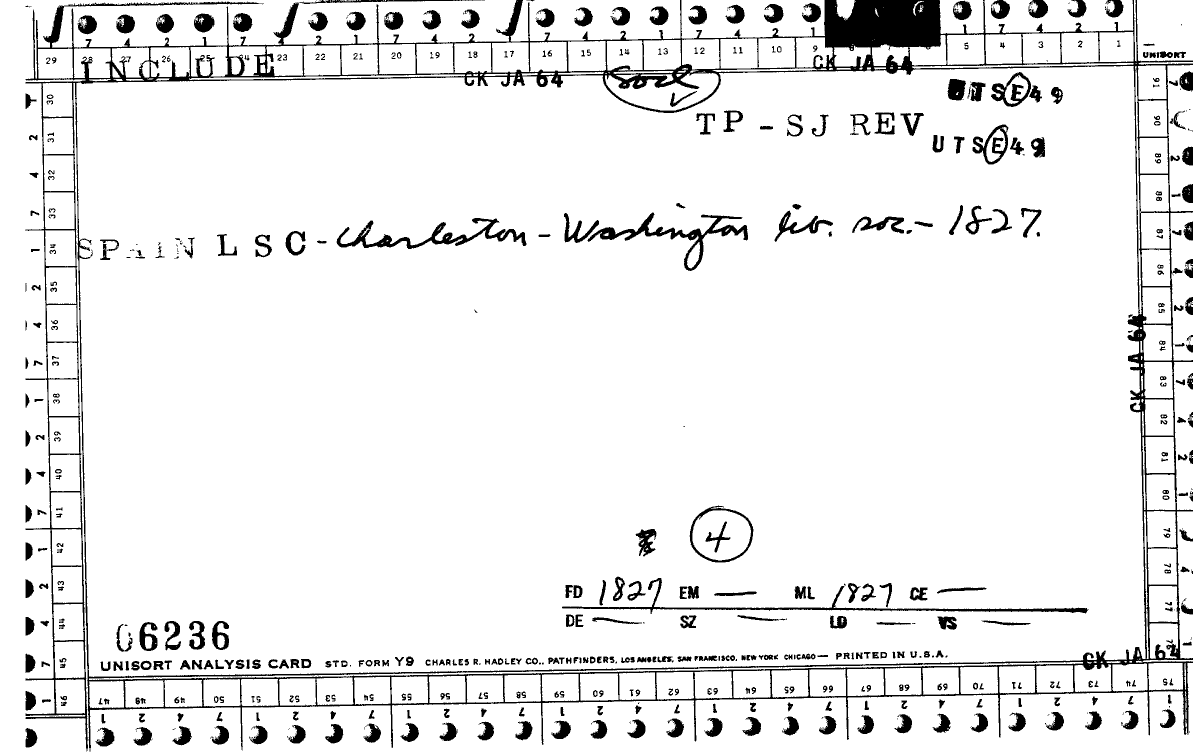 7 4 2 1 7 4 2 1 7 4 2 1 7 4 2 1 7 4 2 1
29 28 27 26 25 24 23 22 21 20 19 18 17 16 15 14 13 12 11 10 9 5 4 3 2 1
UNISORT
INCLUDE
CK JA 64
Socl
CK JA 64
UTSE49
TP - SJ REV
UTSE49
SPAIN LSC - Charleston - Washington lib. soc. - 1827.
CK JA 64
4
FD 1827 EM — ML 1827 CE —
DE — SZ — LD — VS —
06236
UNISORT ANALYSIS CARD STD. FORM Y9 CHARLES R. HADLEY CO., PATHFINDERS, LOS ANGELES, SAN FRANCISCO, NEW YORK CHICAGO — PRINTED IN U.S.A.
CK JA 64
30 31 32 33 34 35 36 37 38 39 40 41 42 43 44 45 46
47 48 49 50 51 52 53 54 55 56 57 58 59 60 61 62 63 64 65 66 67 68 69 70 71 72 73 74 75
1 2 4 7 1 2 4 7 1 2 4 7 1 2 4 7 1 2 4 7 1 2 4 7 1 2 4 7 1
91 90 89 88 87 86 85 84 83 82 81 80 79 78 77